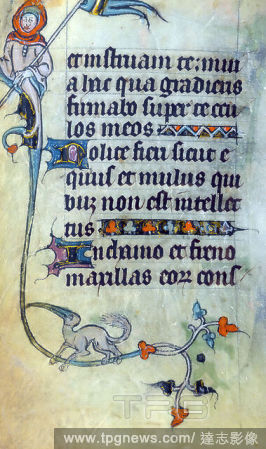 et instruam te: in ui
a hac qua gradieris
firmabo super te ocu
los meos
Nolite fieri sicut e
quus et mulus qui
buz non est intellec
tus
In chamo et freno
maxillas eorꝝ cons
TPG
www.tpgnews.com/ 達志影像